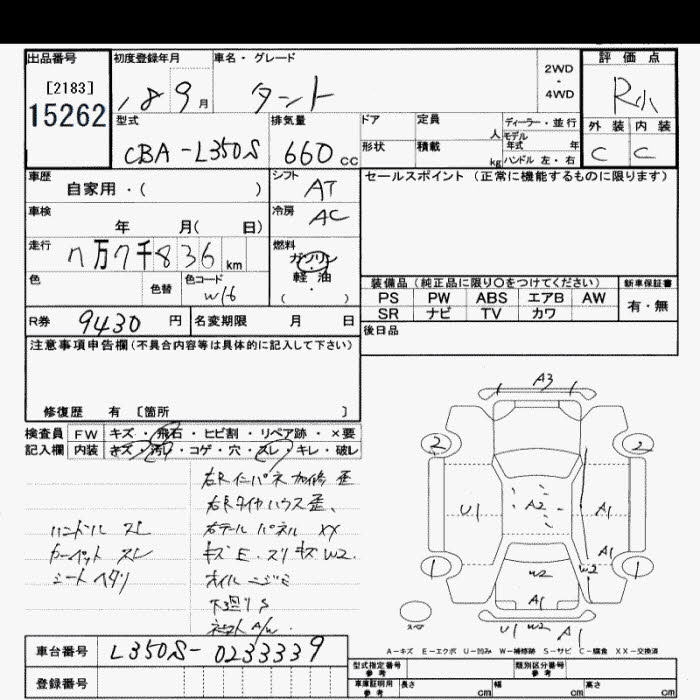 出品番号 初度登録年月 車名・グレード 2WD・4WD 評価点
[2183]
15262
18 9月 タント R小
型式 排気量 ドア 定員 人 ディーラー・並行 外装 内装
CBA-L350S 660cc 形状 積載 kg モデル年式 年 C C
ハンドル 左・右
車歴 自家用・( ) シフト AT セールスポイント(正常に機能するものに限ります)
車検 年 月( 日) 冷房 AC
走行 7万7千836km 燃料 ガソリン
軽油
・
( )
色 色替 色コード W16
装備品(純正品に限り○をつけてください) 新車保証書
PS PW ABS エアB AW 有・無
SR ナビ TV カワ
R券 9430円 名変期限 月 日 後日品
注意事項申告欄(不具合内容等は具体的に記入して下さい)
修復歴 有 [箇所 ]
検査員 FW キズ・飛石・ヒビ割・リペア跡・×要
記入欄 内装 きズ・汚レ・コゲ・穴・スレ・キレ・破レ
右Rインパネ加修歪
右Rタイヤハウス歪、
ハンドル スレ 右テールパネル XX
カーペット スレ キズE.スリキズW2.
シートヘタリ オイルニジミ
下廻りS
社外A/W.
A3
2 2
U1 A2 A1
A1
1 W2 W2 1
A1
スペア U1 W2 A1
A-キズ E-エクボ U-凹み W-補修跡 S-サビ C-腐食 XX-交換済
車台番号 L350S-0233339
登録番号
型式指定番号 参考 類別区分番号 参考
車庫証明用 参考 長さ cm 幅 cm 高さ cm